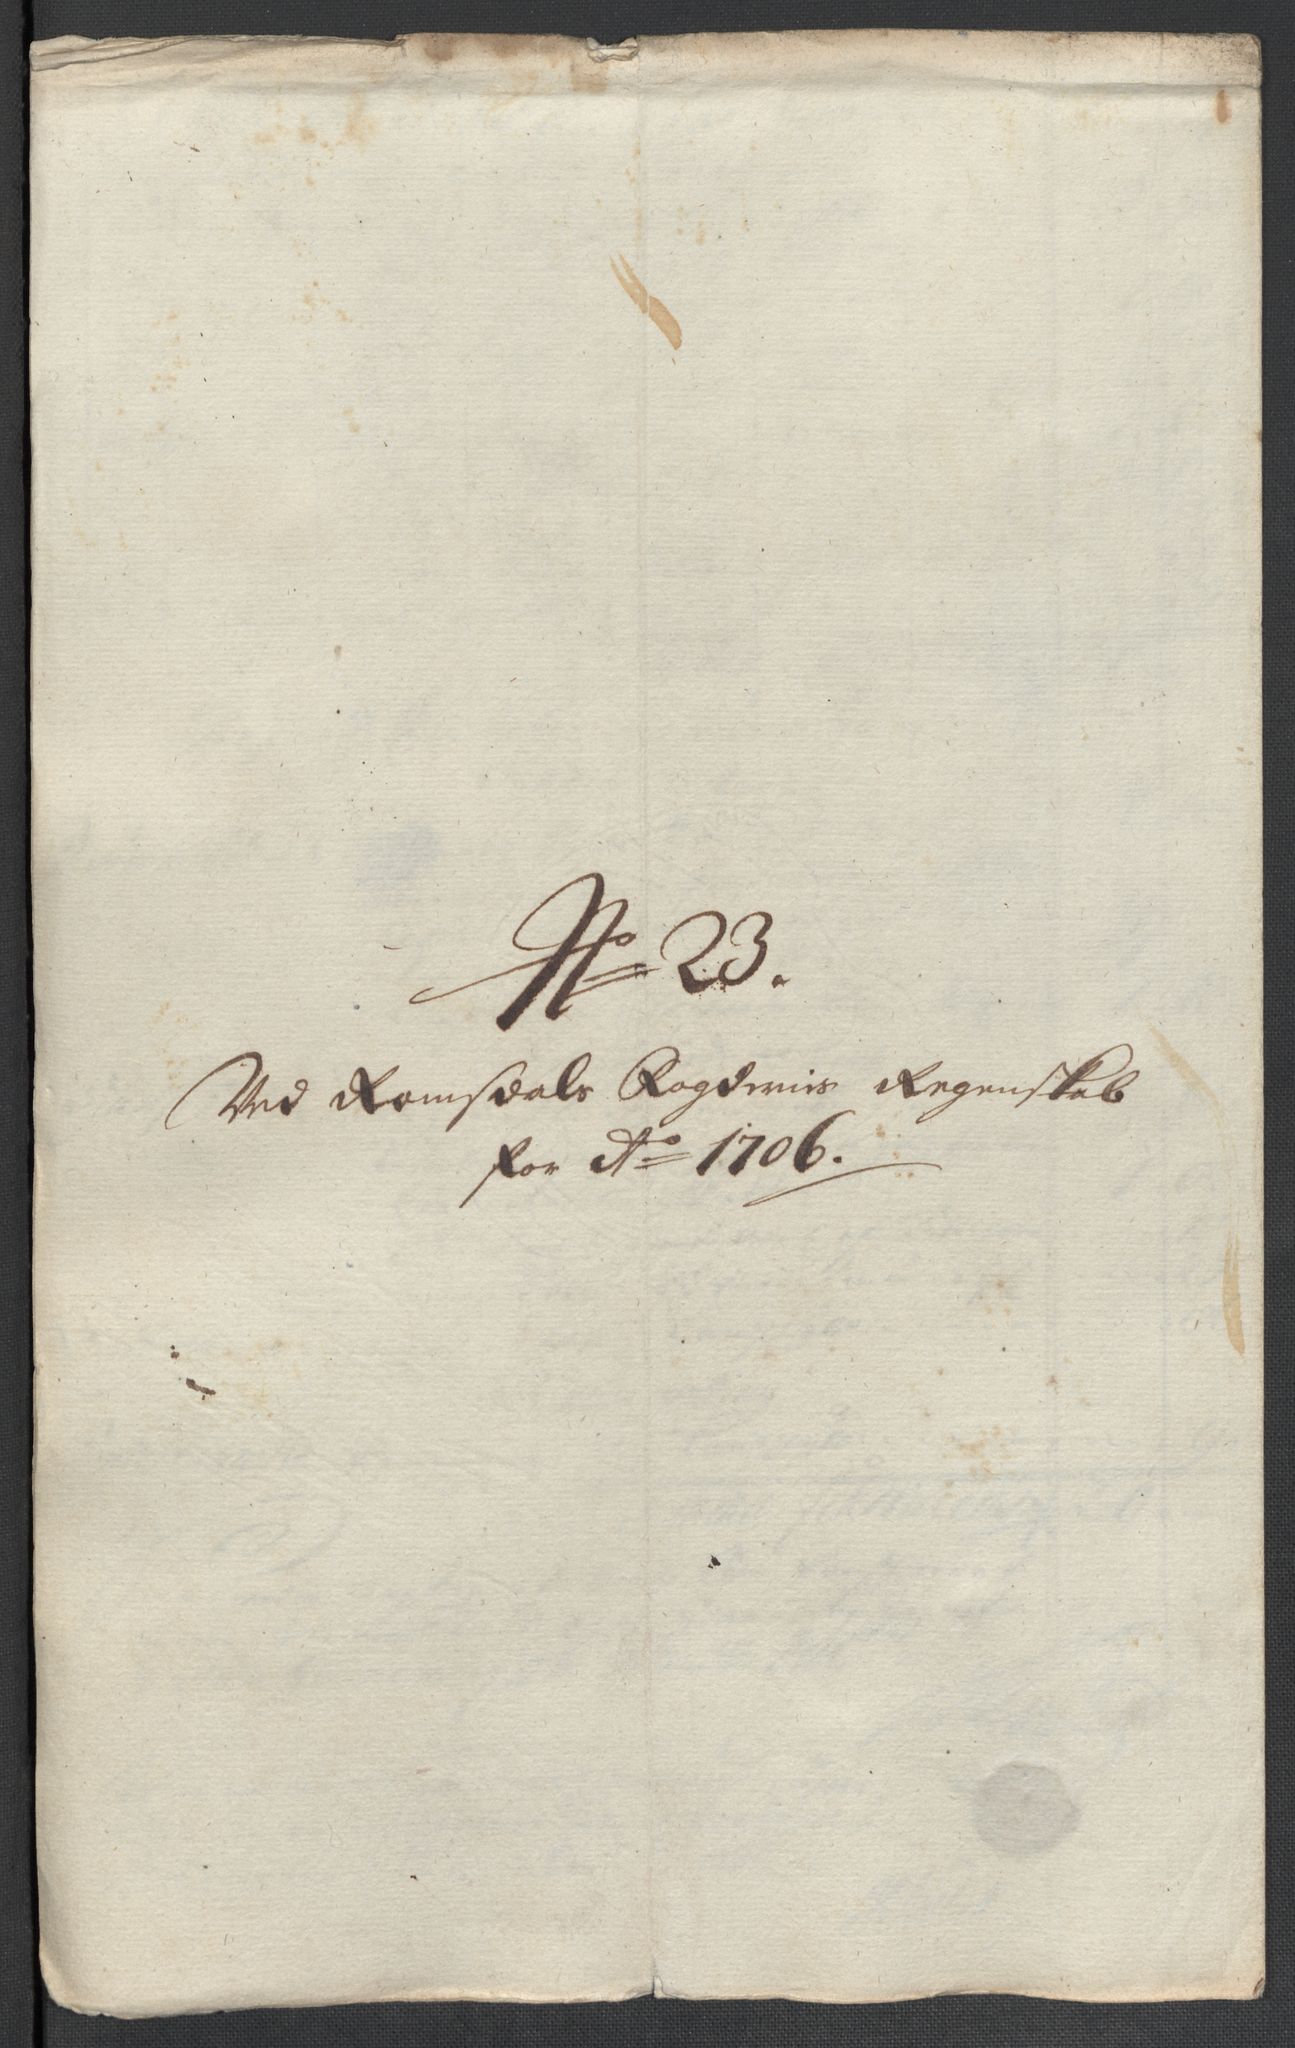 No 23.
Ved Romsdals Fogderies Regenskab
for Ao 1706.